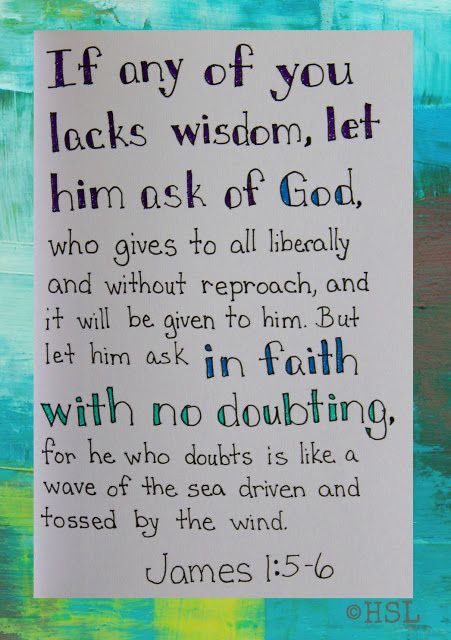 If any of you
lacks wisdom, let
him ask of God,
who gives to all liberally
and without reproach, and
it will be given to him. But
let him ask in faith
with no doubting,
for he who doubts is like a
wave of the sea driven and
tossed by the wind.
James 1:5-6
©HSL